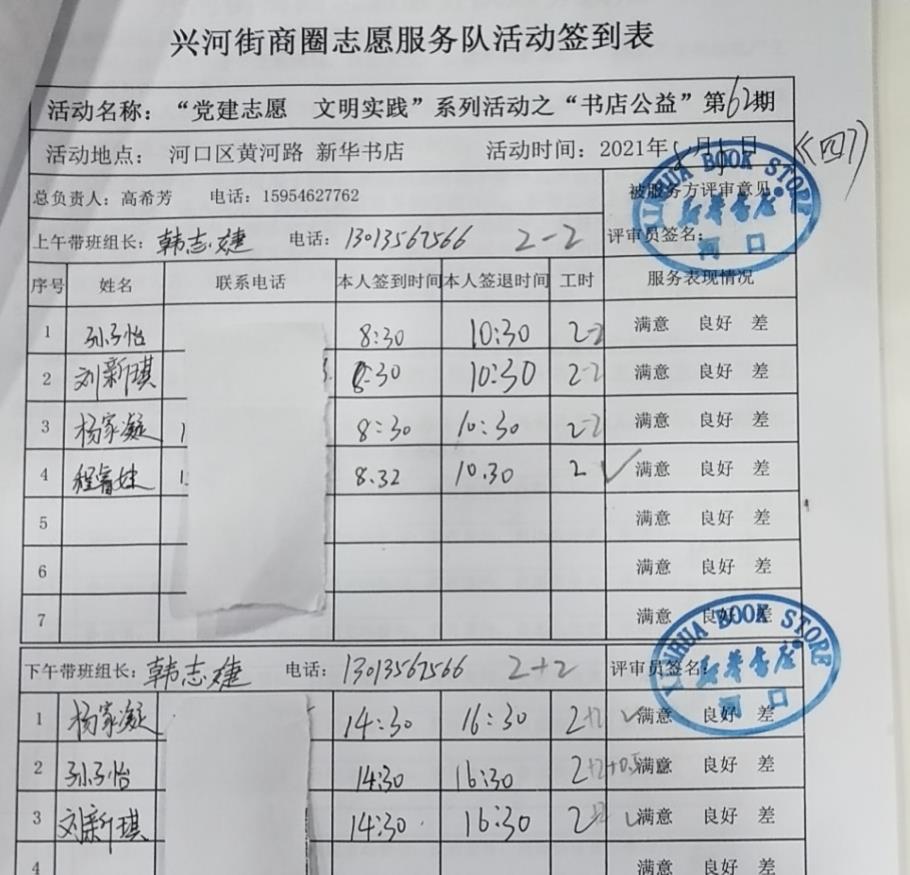 兴河街商圈志愿服务队活动签到表
活动名称：“党建志愿 文明实践”系列活动之“书店公益”第62期
活动地点： 河口区黄河路 新华书店 活动时间：2021年 月 日 （四）
总负责人：高希芳 电话：15954627762 被服务方评审意见
上午带班组长：韩志婕 电话：13013567566 2-2 评审员签名：
XINHUA BOOK STORE
新华书店
河口
序号 姓名 联系电话 本人签到时间 本人签退时间 工时 服务表现情况
1 孙子怡 8:30 10:30 2-2 满意 良好 差
2 刘新琪 8:30 10:30 2-2 满意 良好 差
3 杨家凝 8:30 10:30 2-2 满意 良好 差
4 程睿婕 8.32 10.30 2 ✓ 满意 良好 差
5 满意 良好 差
6 满意 良好 差
7 满意 良好 差
下午带班组长：韩志婕 电话：13013567566 2+2 评审员签名：
XINHUA BOOK STORE
新华书店
河口
1 杨家凝 14:30 16:30 2+2 ✓ 满意 良好 差
2 孙子怡 14:30 16:30 2+2+0.5 满意 良好 差
3 刘新琪 14:30 16:30 2+2 ✓ 满意 良好 差
4 满意 良好 差